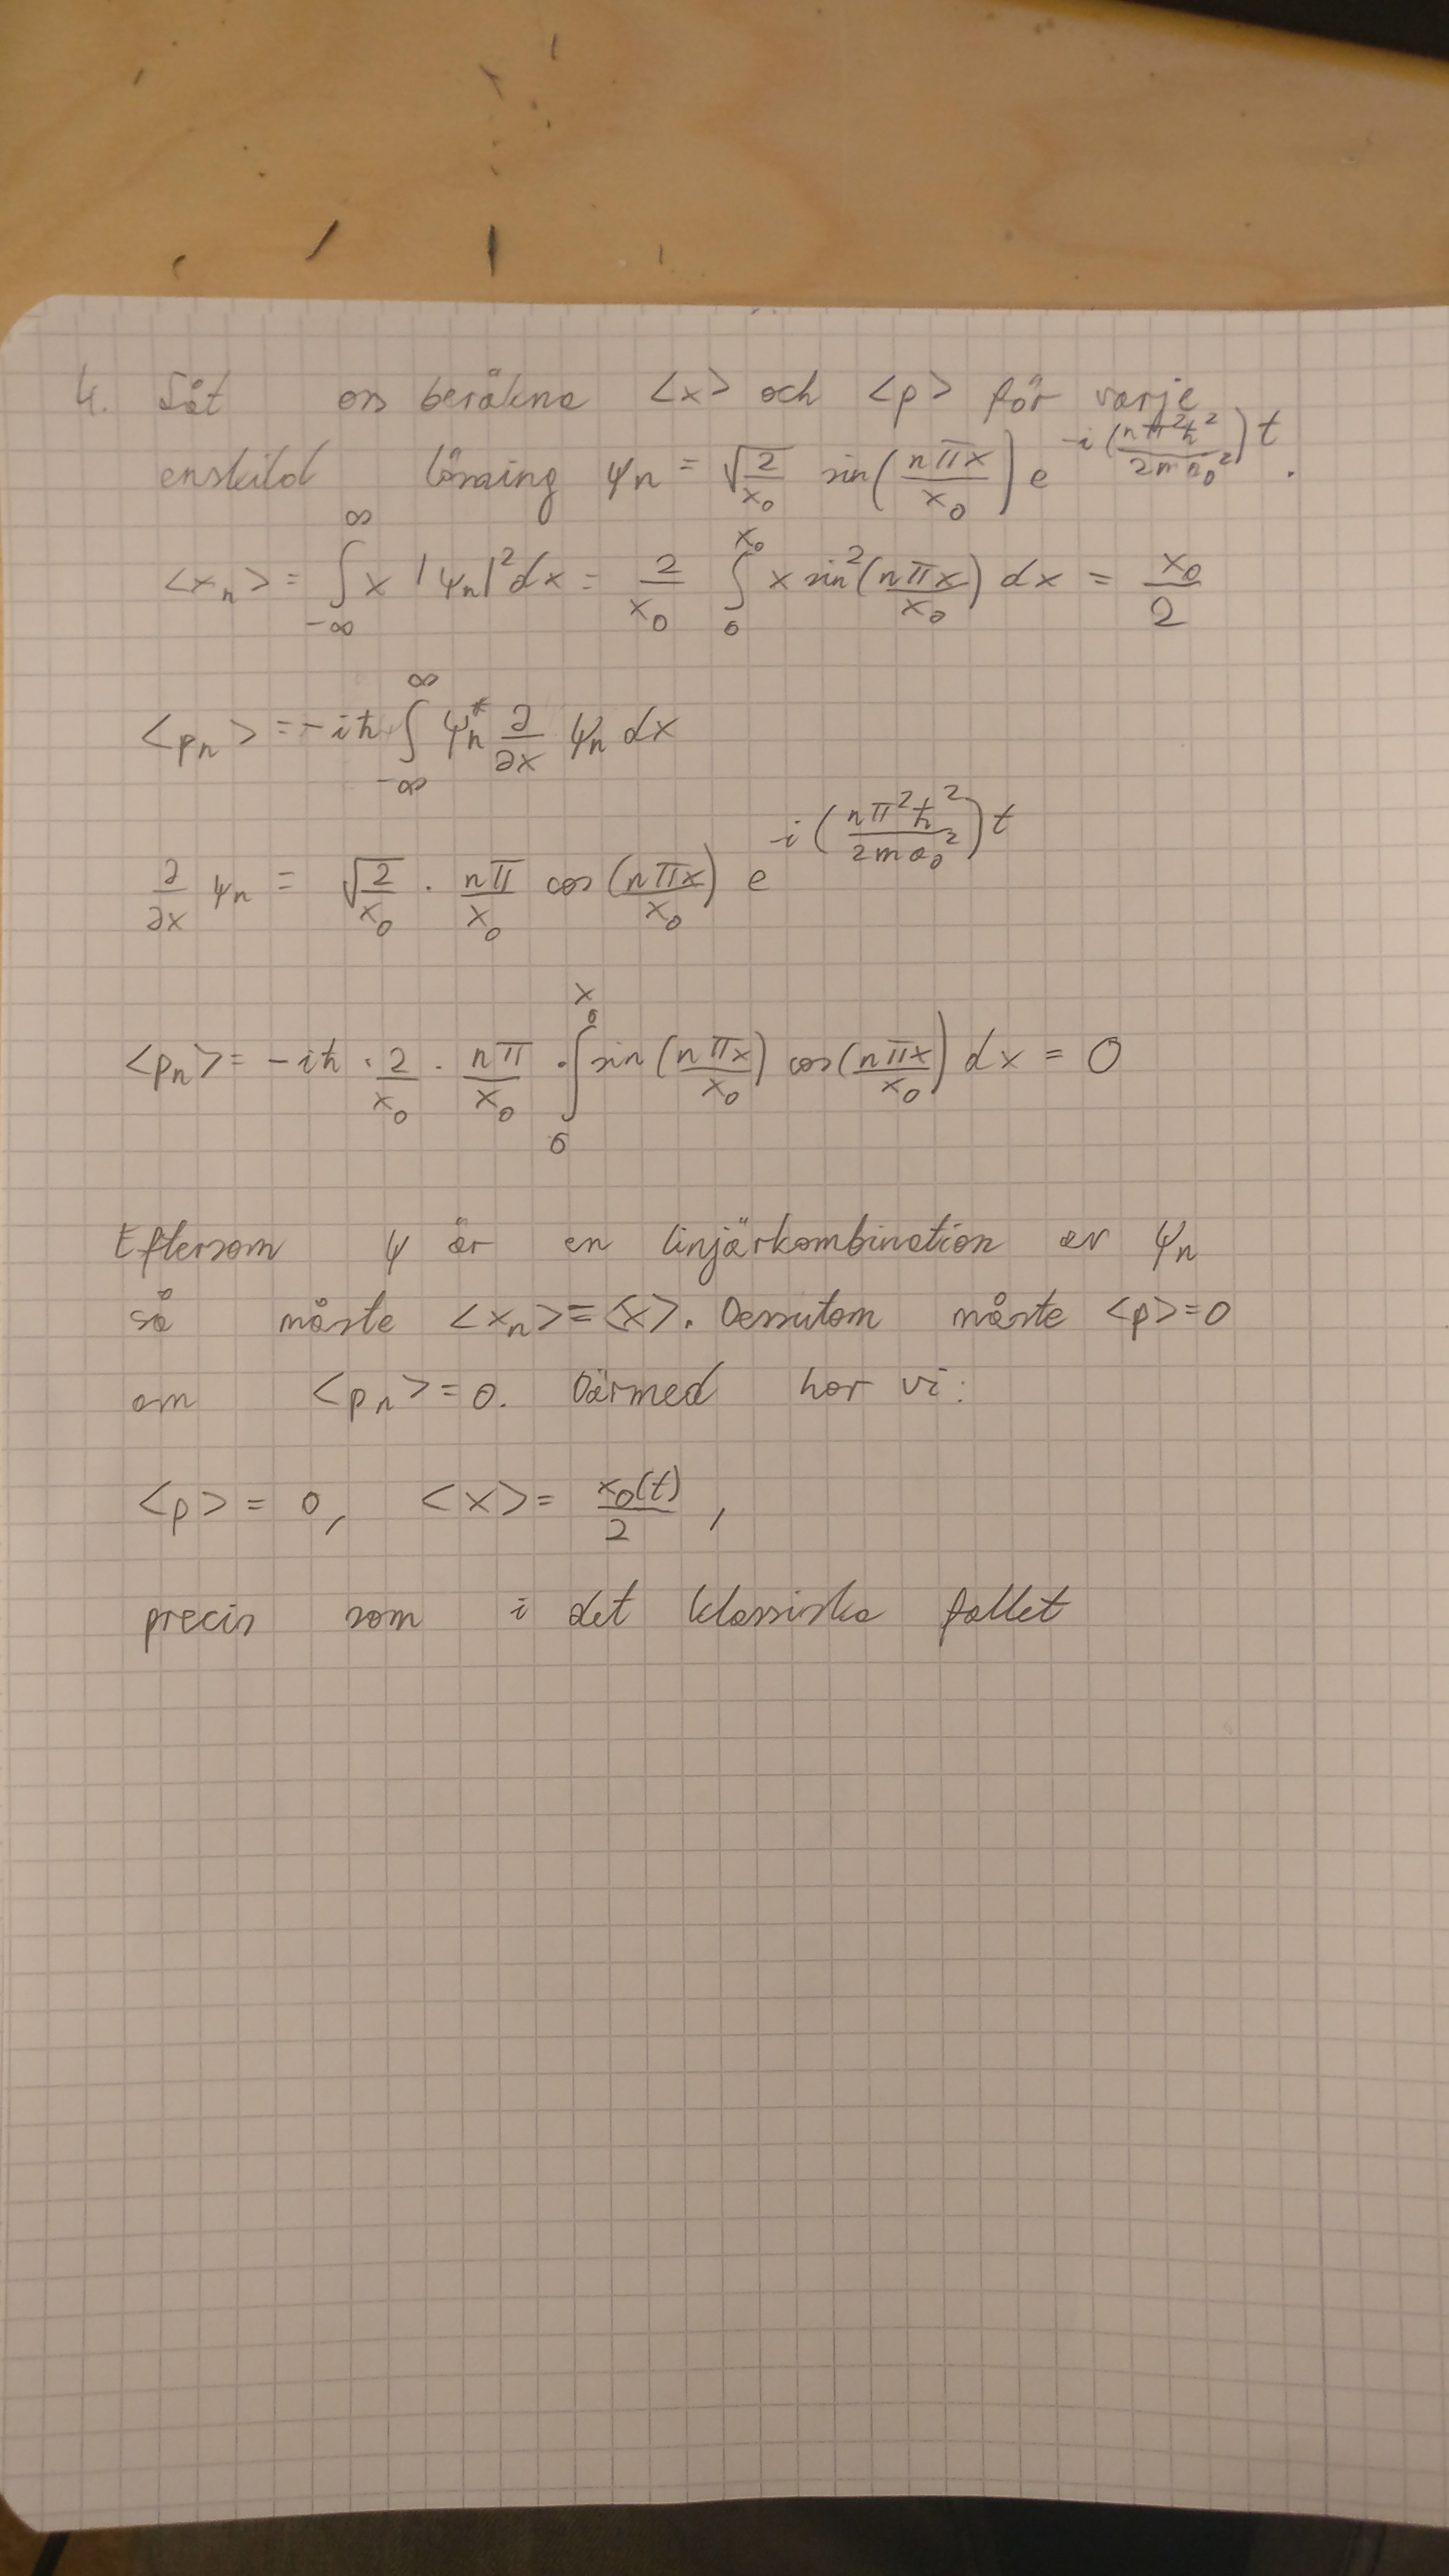 4. Låt oss beräkna <x> och <p> för varje
enskild lösning ψn = √(2/x₀) sin(nπx/x₀) e^(-i(nπ²ħ²/2ma₀²)t).
<xₙ> = ∫_{-∞}^{∞} x |ψn|² dx = 2/x₀ ∫_0^{x₀} x sin²(nπx/x₀) dx = x₀/2
<pₙ> = -iħ ∫_{-∞}^{∞} ψn* ∂/∂x ψn dx
∂/∂x ψn = √(2/x₀) · nπ/x₀ cos(nπx/x₀) e^(-i(nπ²ħ²/2ma₀²)t)
<pₙ> = -iħ · 2/x₀ · nπ/x₀ · ∫_0^{x₀} sin(nπx/x₀) cos(nπx/x₀) dx = 0
Eftersom ψ är en linjärkombination av ψn
så måste <xₙ> = <x>. Dessutom måste <p> = 0
om <pₙ> = 0. Därmed har vi:
<p> = 0, <x> = x₀(t)/2,
precis som i det klassiska fallet